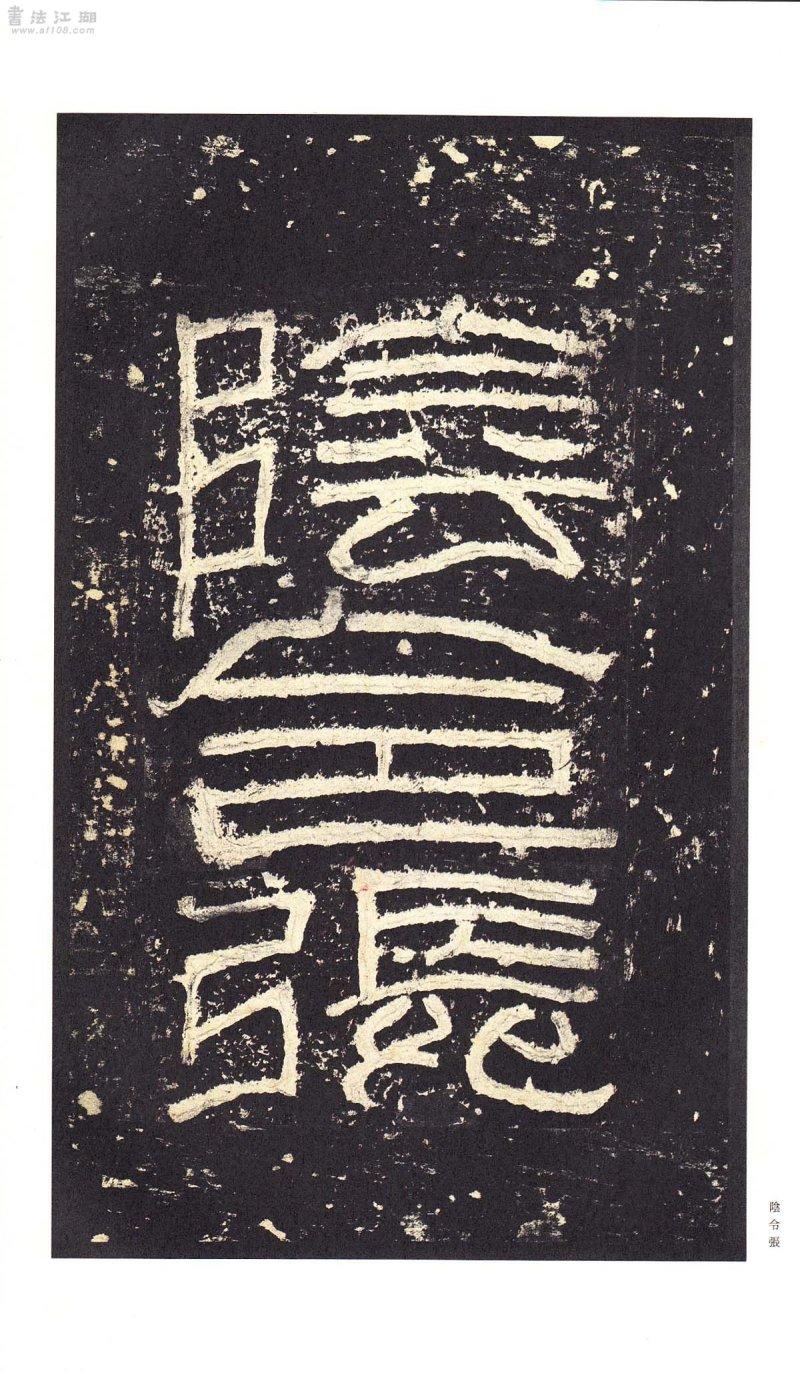 書法江湖
www.af108.com
陰
令
張
陰令張